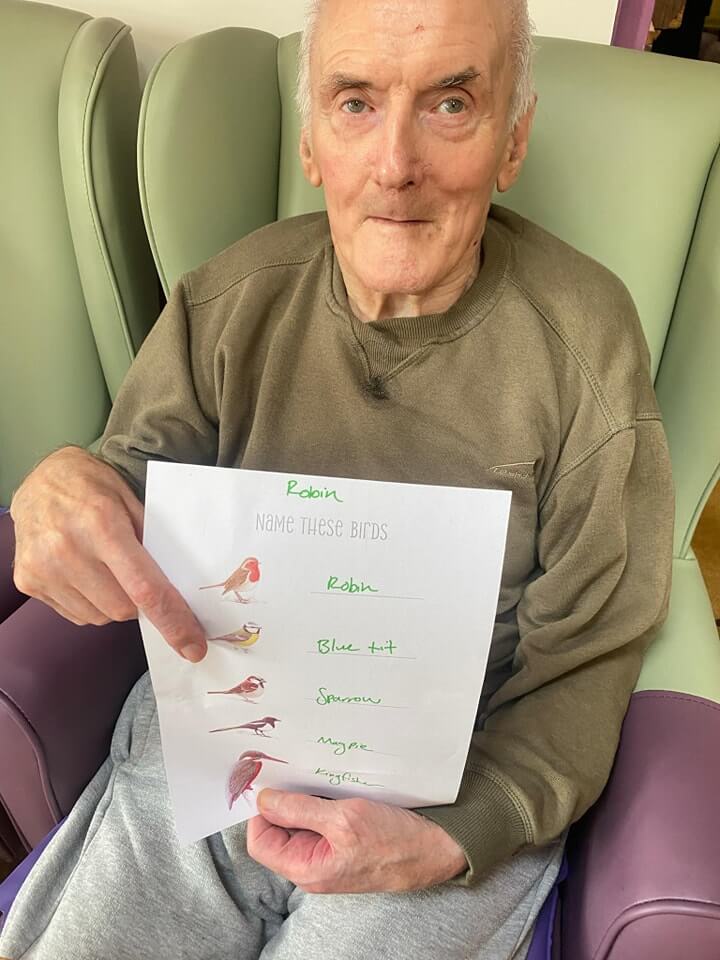 Robin
NAME THESE BIRDS
Robin
Blue tit
Sparrow
Magpie
Kingfisher